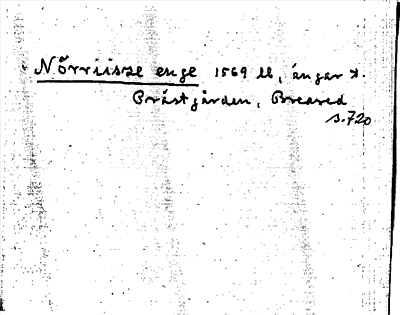 Nőrriisze enge 1569 ll, ängar t.
Prästgården, Breared
s. 720